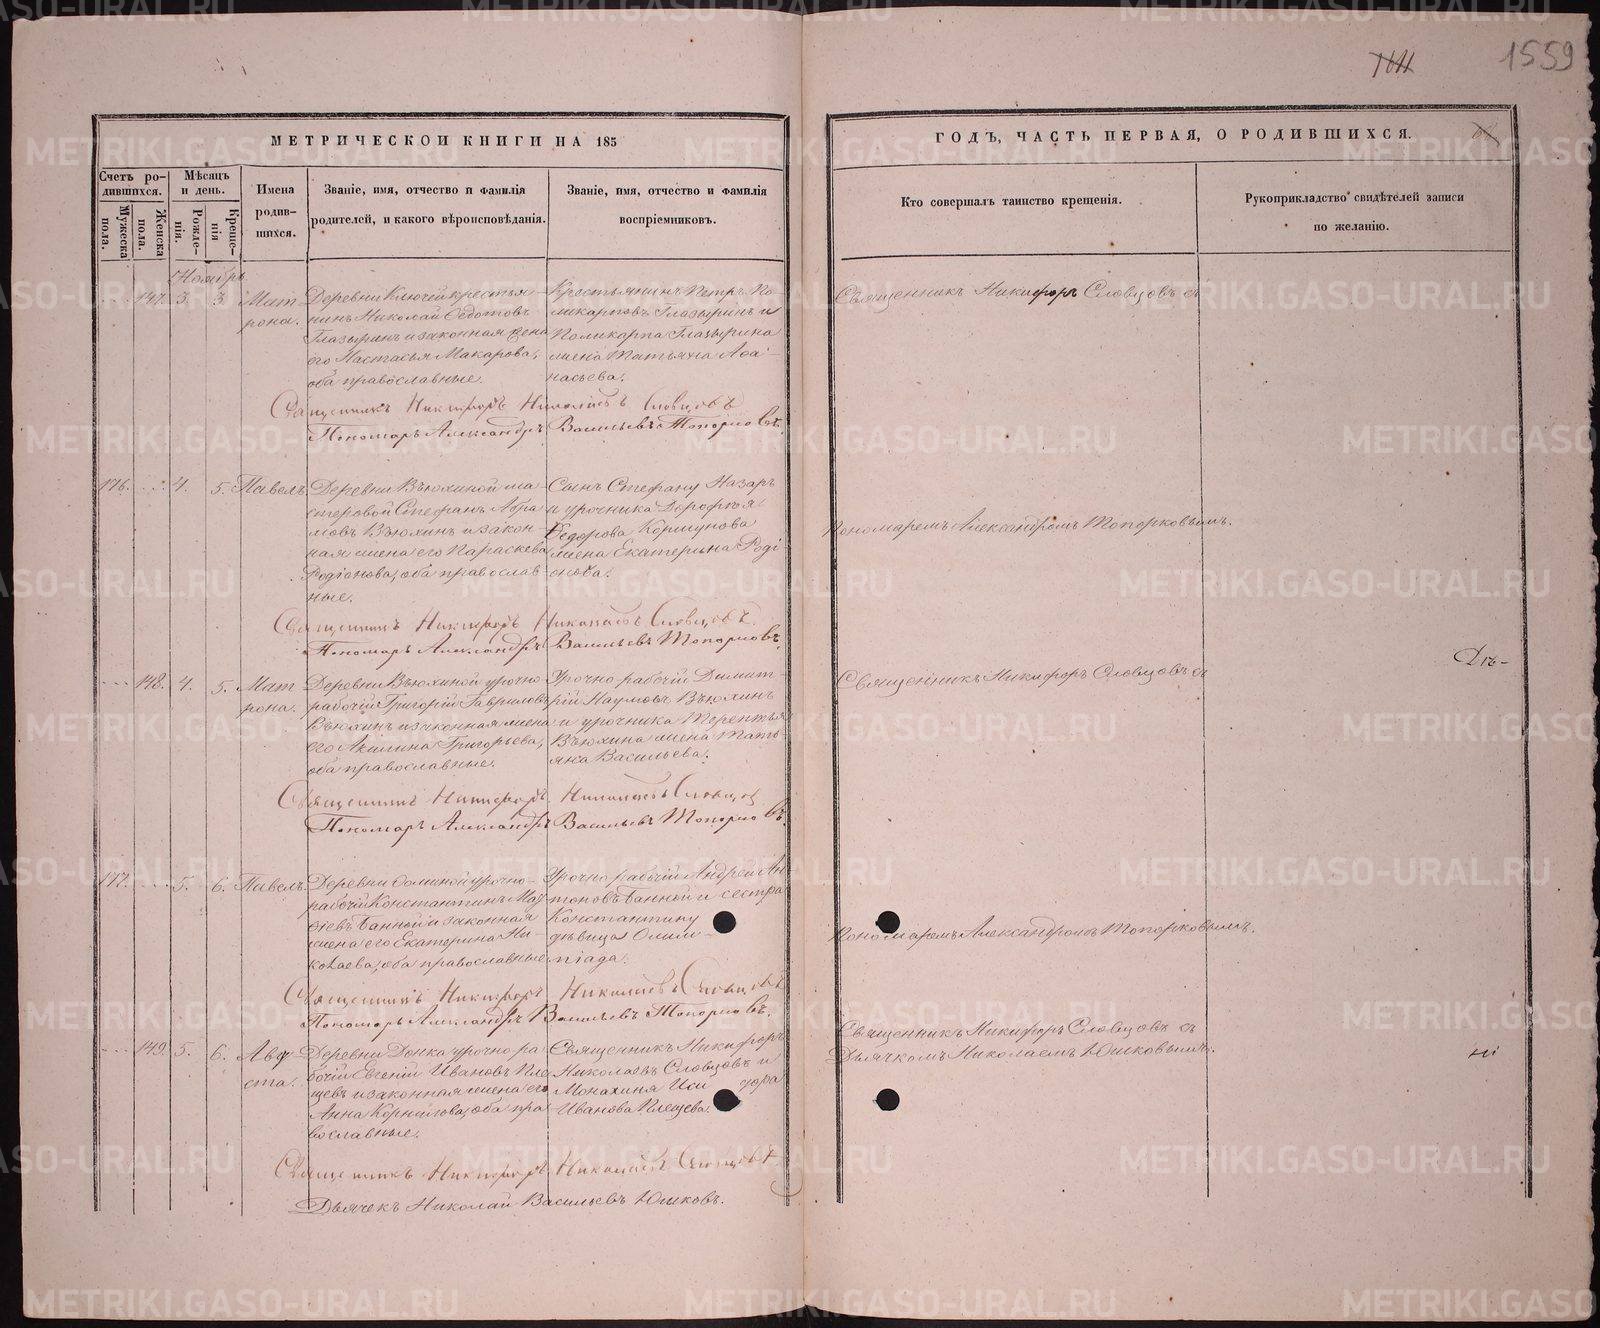 1559
МЕТРИЧЕСКОЙ КНИГИ НА 185
ГОДЪ, ЧАСТЬ ПЕРВАЯ, О РОДИВШИХСЯ.
Счетъ ро-
дившихся.
Мѣсяцъ
и день.
Имена
родив-
шихся.
Званіе, имя, отчество и фамилія
родителей, и какого вѣроисповѣданія.
Званіе, имя, отчество и фамилія
воспріемниковъ.
Кто совершалъ таинство крещенія.
Рукоприкладство свидѣтелей записи
по желанію.
Мужеска
пола.
Женска
пола.
Рожде-
нія.
Креще-
нія
Ноябрь
147. 3. 3. Мат
рона.
Деревни Ключей крестья-
нинъ Николай Ѳедотовъ
Глазыринъ и законная жена
его Настасья Макарова,
оба православные.
Крестьянинъ Петръ По-
ликарповъ Глазыринъ и
Поликарпа Глазырина
жена Татьяна Афа-
насьева.
Священникъ Никифоръ Словцовъ съ
Священникъ Никифоръ Николаевъ Словцовъ
Пономарь Александръ Васильевъ Топорковъ.
176. 4. 5. Павелъ.
Деревни Вьюхиной ма-
стеровой Стефанъ Абра
мовъ Вьюхинъ и закон-
ная жена его Параскева
Родіонова, оба православ-
ные.
Сынъ Стефану Назаръ
и урочника Дорофѣя
Ѳедорова Коршунова
жена Екатерина Роді-
онова.
Пономаремъ Александромъ Топорковымъ.
Священникъ Никифоръ Николаевъ Словцовъ.
Пономарь Александръ Васильевъ Топорковъ.
148. 4. 5. Мат
рона.
Деревни Вьюхиной урочно-
рабочій Григорій Гавриловъ
Вьюхинъ и законная жена
его Акилина Григорьева,
оба православные.
Урочно рабочій Димит-
рій Наумовъ Вьюхинъ
и урочника Терентья
Вьюхина жена Тать-
яна Васильева.
Священникъ Никифоръ Словцовъ съ
Дь-
Священникъ Никифоръ Николаевъ Словцов
Пономарь Александръ Васильевъ Топорковъ.
177. 5. 6. Павелъ.
рабочій Константинъ Мат-
ѳіевъ Банной и законная
жена его Екатерина Ни-
колаева, оба православные
Урочно рабочій Андрей Ан
тоновъ Банной и сестра
Константину
дѣвица Олим-
піада.
Пономаремъ Александромъ Топорковымъ.
Священникъ Никифоръ Николаевъ Словцовъ
Пономарь Александръ Васильевъ Топорковъ.
149. 5. 6. Авгу-
ста.
Деревни Донка урочно ра
бочій Евгеній Ивановъ Пле
щевъ и законная жена его
Анна Корнилова, оба пра
вославные.
Священникъ Никифоръ
Николаевъ Словцовъ и
Монахиня Иси дора
Иванова Плещева.
Священникъ Никифоръ Словцовъ съ
Дьячкомъ Николаемъ Юшковымъ.
Священникъ Никифоръ Николаевъ Словцовъ.
Дьячекъ Николай Васильевъ Юшковъ.
METRIKI.GASO-URAL.RU